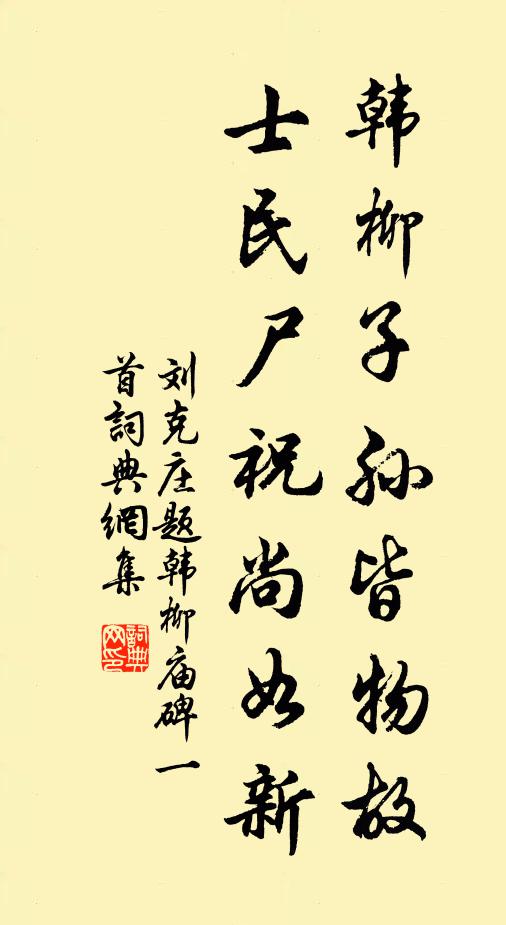 韩柳子孙皆物故
士民尸祝尚如新
刘克庄题韩柳庙碑一
首詞典網集
詞典
网印